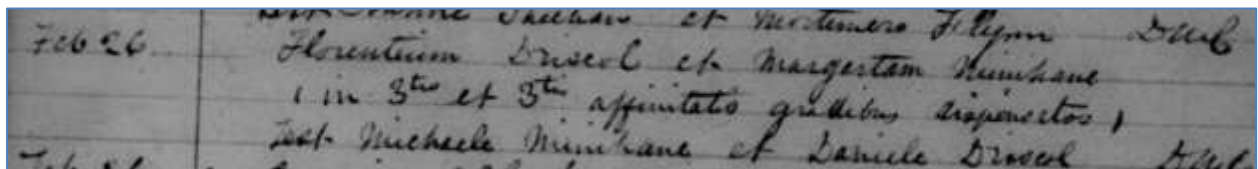 Test Joanne Sheehan et Mortimero Flynn DMC
Feb 26 Florentium Driscol et Margertam Minihane
( in 3tio et 3tio affinitatis gradibus dispensatos )
Test Michaele Minihane et Daniele Driscol DMC
Feb 26